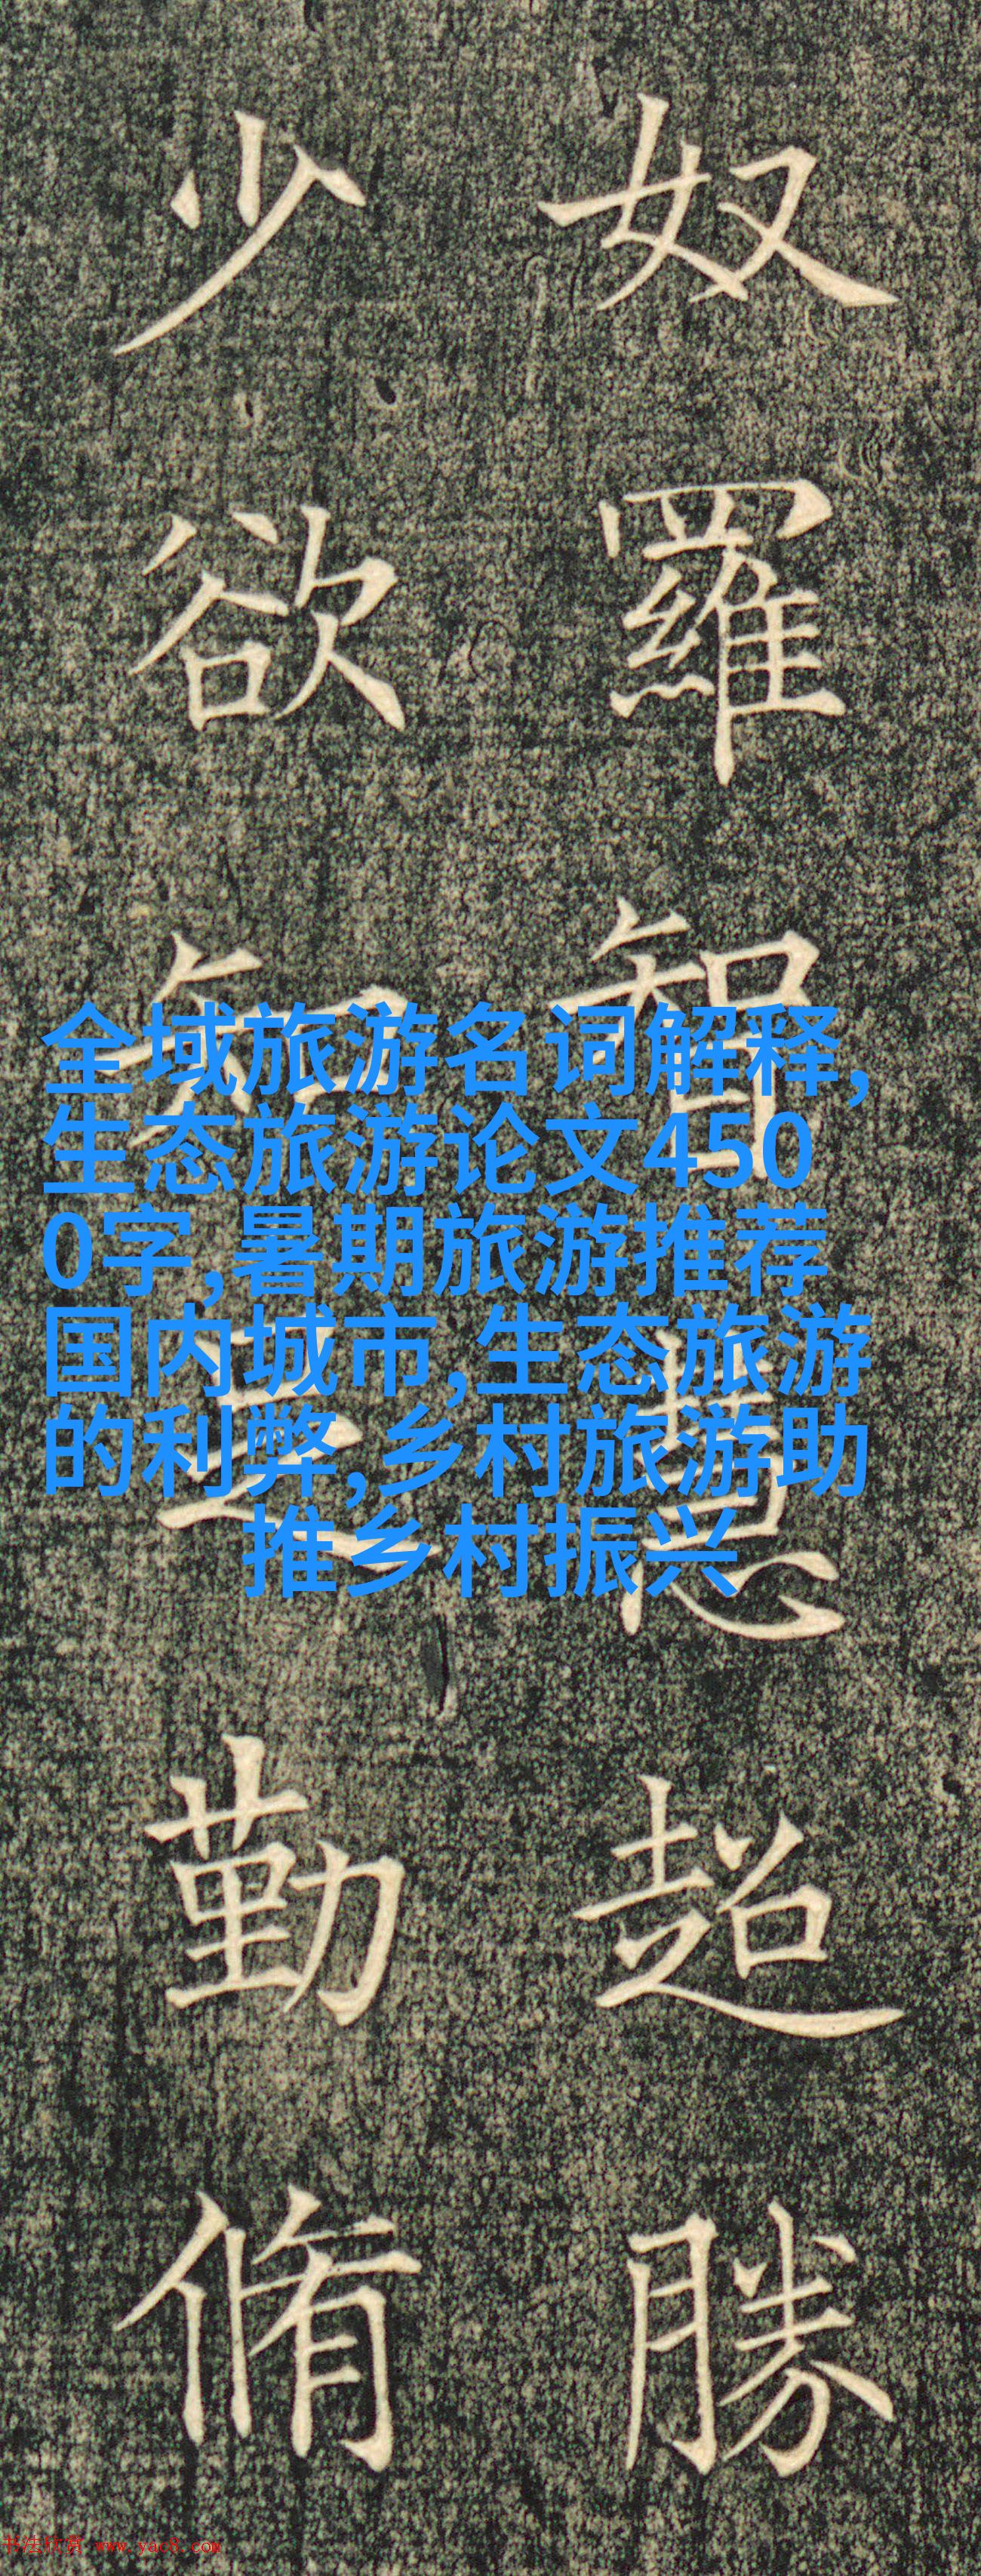 奴羅智慧超勝
少欲知足勤脩
全域旅游名词解释,
生态旅游论文450
0字,暑期旅游推荐
国内城市,生态旅游
的利弊,乡村旅游助
推乡村振兴
书法欣赏 www.yac8.com